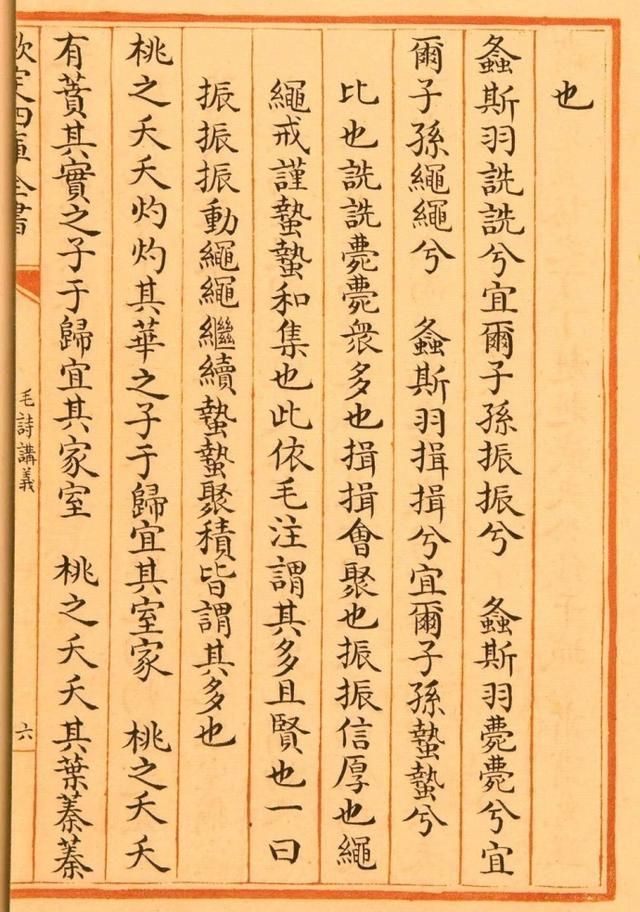 也
螽斯羽詵詵兮宜爾子孫振振兮　螽斯羽薨薨兮宜
爾子孫繩繩兮　螽斯羽揖揖兮宜爾子孫蟄蟄兮
比也詵詵薨薨衆多也揖揖會聚也振振信厚也繩
繩戒謹蟄蟄和集也此依毛注謂其多且賢也一曰
振振振動繩繩繼續蟄蟄聚積皆謂其多也
桃之夭夭灼灼其華之子于歸宜其室家　桃之夭夭
有蕡其實之子于歸宜其家室　桃之夭夭其葉蓁蓁
欽定四庫全書
毛詩講義
六